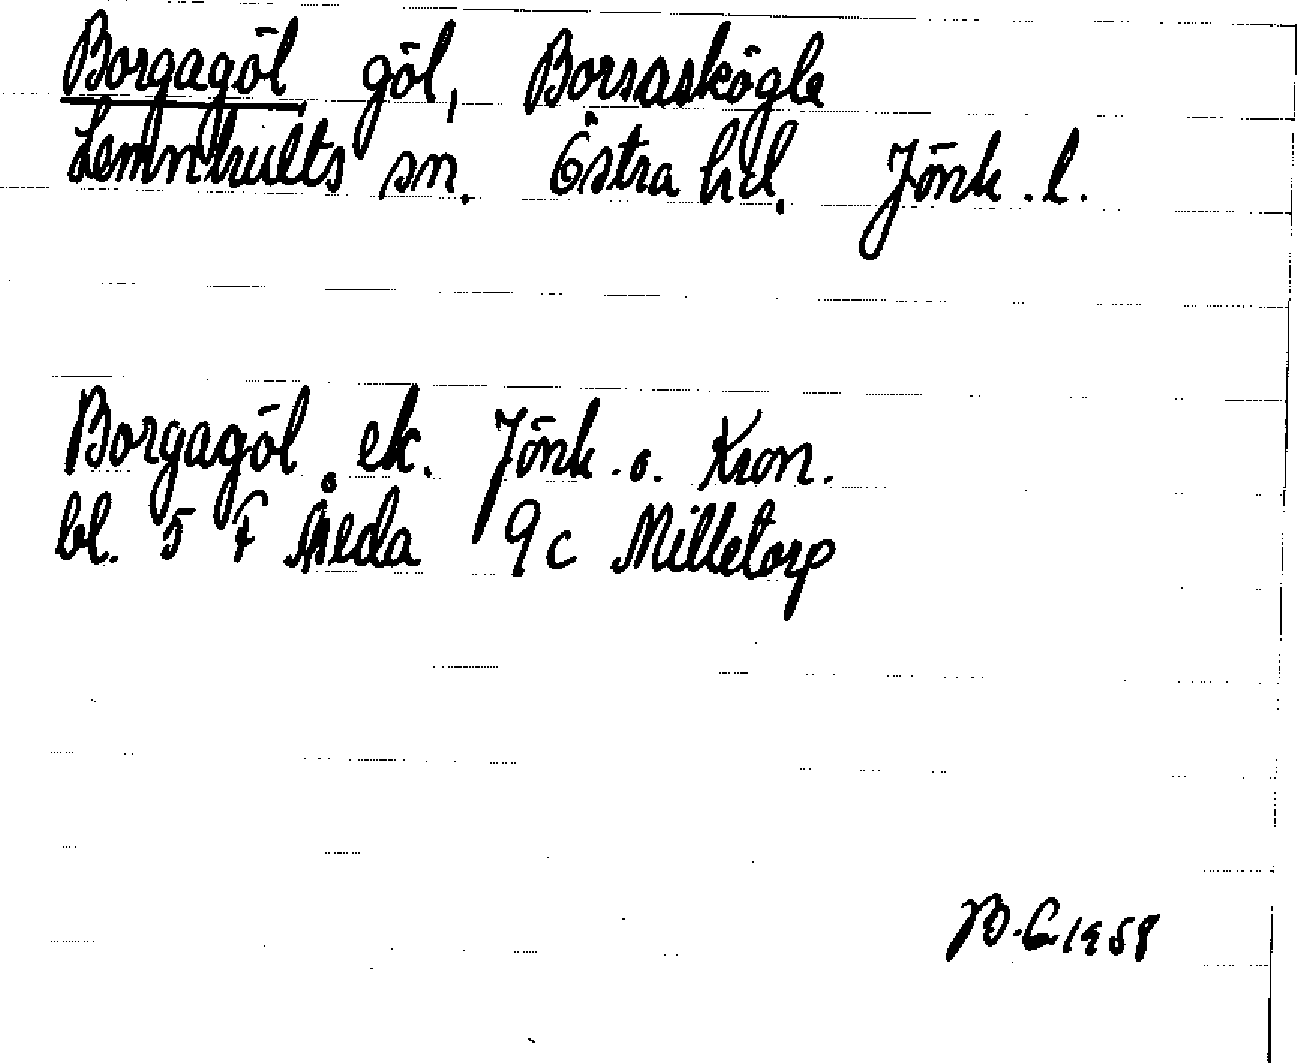 Borgagöl göl, Borsaskögle
Lemnhults sn. Östra hd. Jönk. l.
Borgagöl ek. Jönk. o. Kron.
bl. 5 F Åseda 9c Milletorp
B.E. 1958